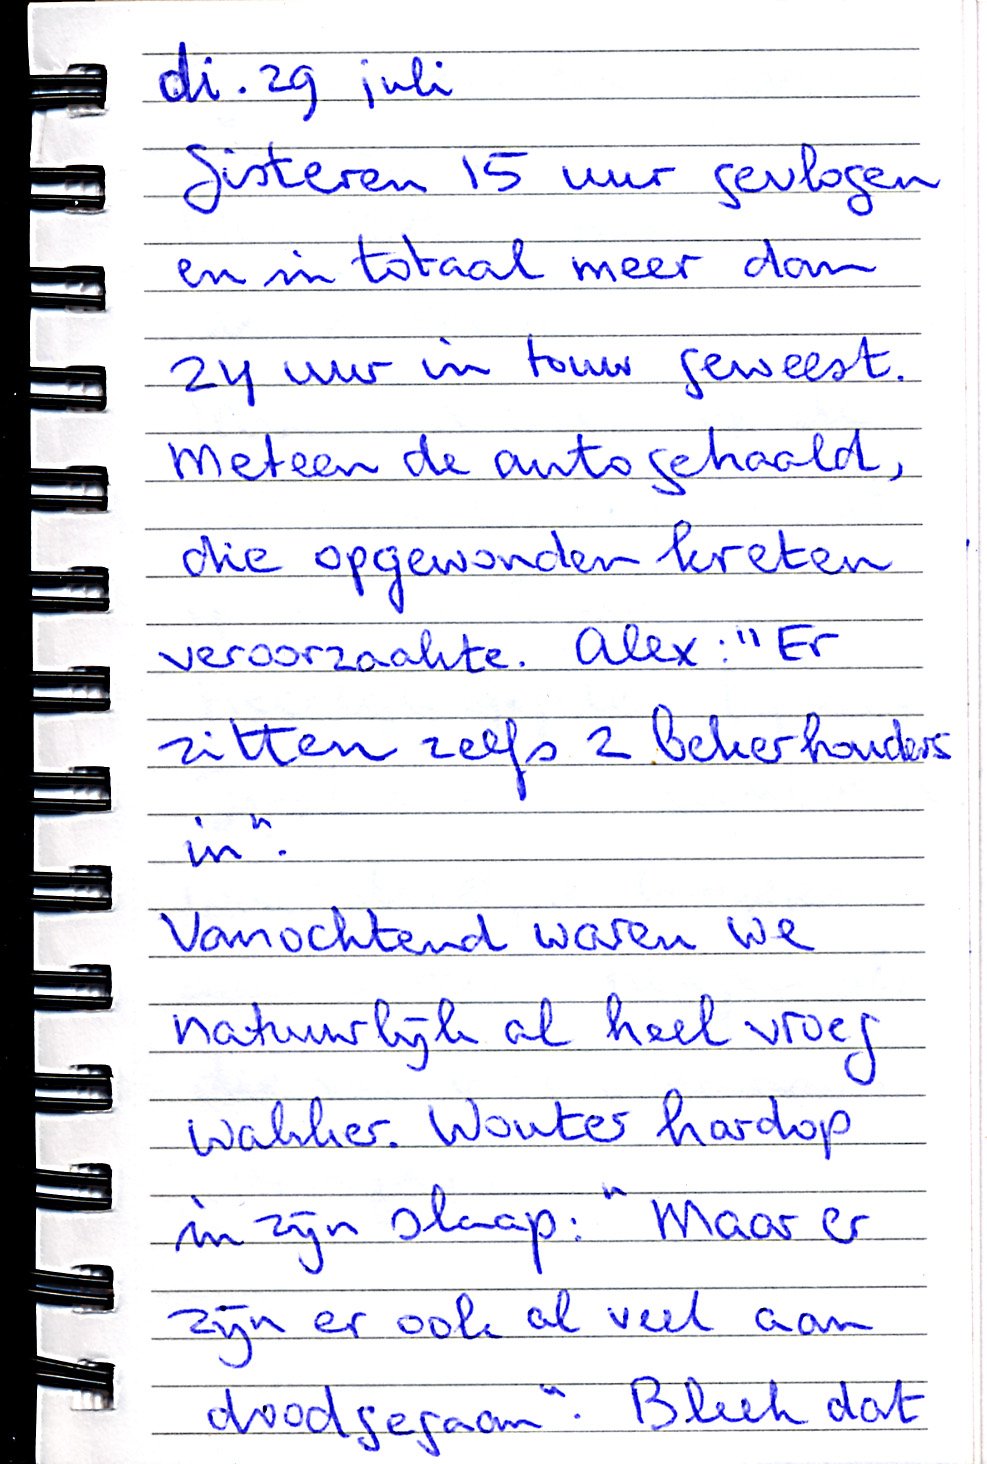 di. 29 juli
Gisteren 15 uur gevlogen
en in totaal meer dan
24 uur in touw geweest.
Meteen de auto gehaald,
die opgewonden kreten
veroorzaakte. Alex: "Er
zitten zelfs 2 bekerhouders
in".
Vanochtend waren we
natuurlijk al heel vroeg
wakker. Wouter hardop
in zijn slaap: "Maar er
zijn er ook al veel aan
doodgegaan". Bleek dat